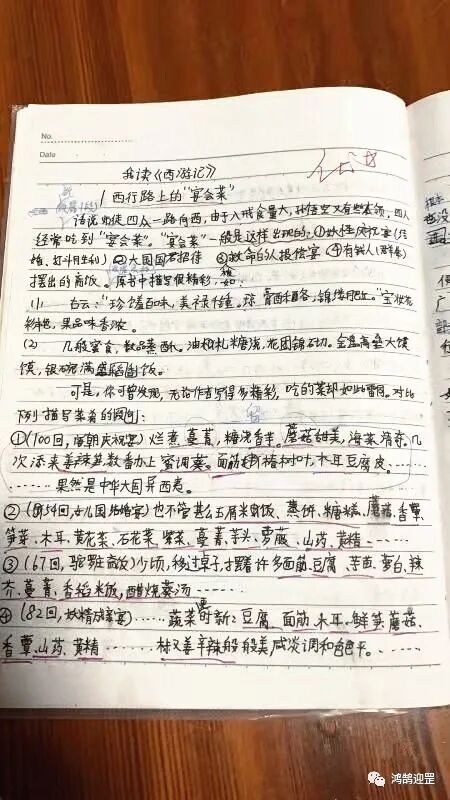 No.
Date
我读《西游记》
西行路上的“宴会菜”
话说师徒四众一路向西，由于八戒食量大，孙悟空又有些本领，四人
经常吃到“宴会菜”。“宴会菜”一般是这样出现的：①妖怪庆忙宴（结
婚、打斗胜利）②大国国君招待 ③救命的人报偿宴 ④有钱人（群众）
摆出的斋饭。原书中描写很精彩，如：
(1) 白云：“珍馐百味，美禄千钟。琼膏酥酪，锦缕肥红。”宝妆花
彩艳，果品味香浓。
(2) 几般蜜食，数品蒸酥。油札糖浇，花团锦砌。金盘高垒大馍
馍，银碗满盛稻饭。
可是，你可曾发现，无论作者写得多精彩，吃的菜却如此雷同。对比
下列描写菜肴的图例：
①(100回，唐朝庆祝宴) 烂煮蔓菁，糖浇香芋。蘑菇甜美，海菜清奇。几
次添来姜辣笋，数番办上蜜调葵。面筋椿树叶，木耳豆腐皮。……
……果然是中华大国异西夷。
②(第54回，女儿国结婚宴) 也不管甚么玉屑米饭、蒸饼、糖糕、蘑菇、香蕈、
笋芽、木耳、黄花菜、石花菜、紫菜、蔓菁、芋头、萝菔、山药、黄精……
③(67回，驼罗庄) 少顷，移过桌子，摆着许多面筋、豆腐、芋苗、萝白、辣
芥、蔓菁、香稻米饭，醋烧葵汤……
④(82回，妖精成亲宴) ……蔬菜更时新：豆腐、面筋、木耳、鲜笋、蘑菇、
香蕈、山药、黄精……椒姜辛辣般般美，咸淡调和色色平。……
鸿鹄迎罡